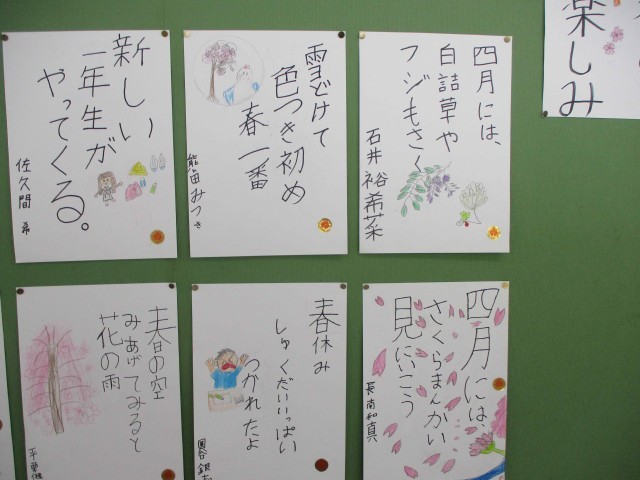 楽しみ
四月には、
白詰草や
フジもさく
石井 裕希菜
雪どけて
色つき初め
春一番
新しい
一年生が
やってくる。
佐久間 希
四月には、
さくらまんかい
見にいこう
長南和真
春休み
しゅくだいいっぱい
つかれたよ
春の空
みあげてみると
花の雨